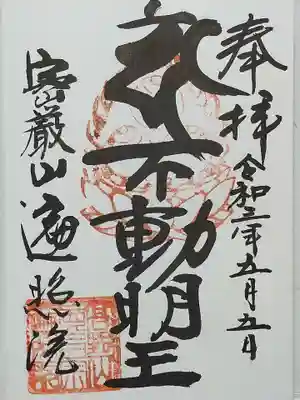 奉拝 令和三年五月五日
不動明王
密厳山 遍照院